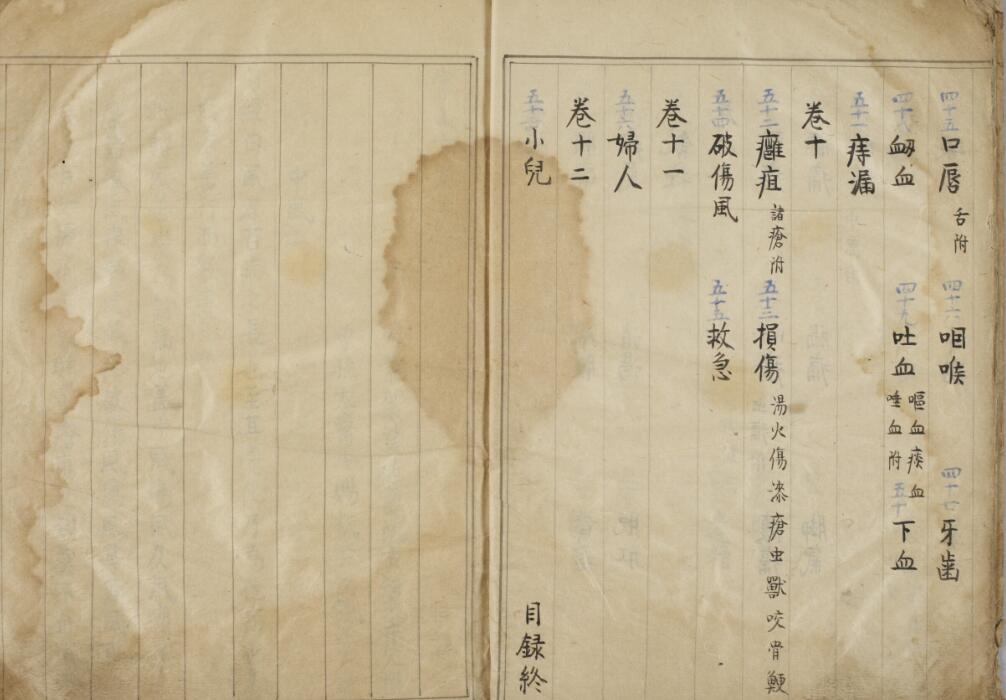 四十五 口唇 舌附 四十六 咽喉 四十七 牙歯
四十八 衂血 四十九 吐血 嘔血痰血 唾血附 五十 下血
五十一 痔漏
巻十
五十二 癰疽 諸瘡附 五十三 損傷 湯火傷漆瘡虫獸咬骨鯁
五十四 破傷風 五十五 救急
巻十一
五十六 婦人
巻十二
五十七 小兒 目録終